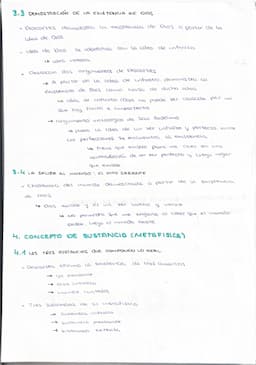 3.3 DEMOSTRACIÓN DE LA EXISTENCIA DE DIOS
· Descartes demuestra la existencia de Dios a partir de la
idea de Dios
· Idea de Dios se identifica con la idea de infinito
→ idea innata
· Destacan dos argumentos de Descartes
→ A partir de la idea de infinito demuestra la
existencia de Dios como causa de dicha idea
idea de infinito (Dios) no puede ser causada por
que soy finito e imperfecto
→ argumento ontológico de San Anselmo
→ pues la idea de un ser infinito y perfecto
las perfecciones se encuentra la existencia
tiene que existir
de un ser perfecto y luego negar
que exista
3.4 LA SALIDA AL MUNDO: EL DIOS GARANTE
· Existencia del mundo demostrada a partir de la existencia
de Dios
→ Dios existe y es un ser bueno y veraz
→ no permitirá que me engañe al creer que el mundo
existe, luego el mundo existe
4. CONCEPTO DE SUSTANCIA (METAFÍSICA)
4.1 LAS TRES SUSTANCIAS QUE COMPONEN LO REAL
· Descartes afirma la existencia de tres
→ yo pensante
→ Dios infinito
→ mundo
· Tres sustancias de su metafísica
→ sustancia infinita
→ sustancia pensante
→ sustancia extensa